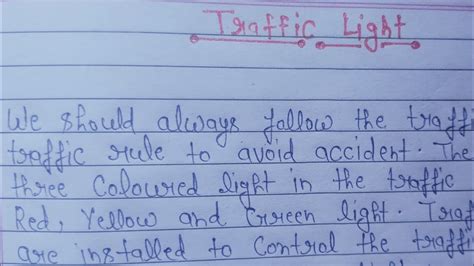 Traffic Light
We should always fallow the traffi
traffic rule to avoid accident. The
three Coloured light in the traffic
Red, Yellow and Green light. Traf
are installed to Control the traffi